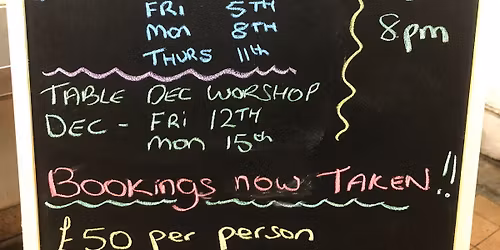 FRI 5TH
MON 8TH
8pm
THURS 11th
TABLE DEC WORSHOP
DEC - FRI 12TH
MON 15th
BOOKINGS NOW TAKEN!!
£50 per person